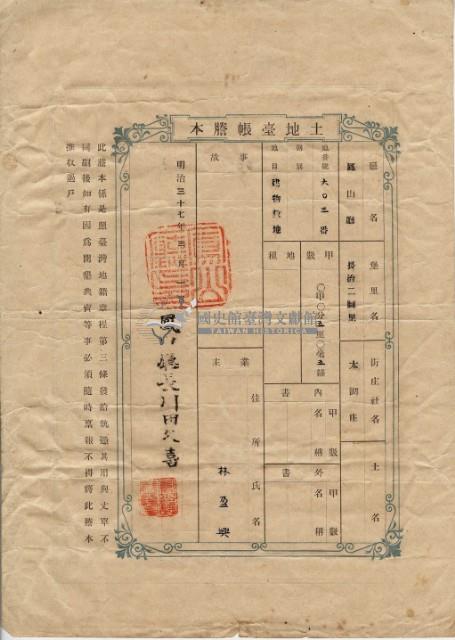 土地臺帳謄本
廳名
鳳山廳
堡里名
長治二圖里
街庄社名
土名
地番號
六〇三番
則別
地目
建物敷地
甲數
〇甲〇分五厘〇毫五絲
地租
內書
甲數
名稱
外書
甲數
名稱
事故
業主
住所
氏名
林盈興
明治三十七年
廳長川田久喜
此謄本係是照臺灣地籍章程第三條發給執憑其用與丈單不
同嗣後如有因爲開墾典賣等事必須隨時稟報不得將此謄本
推收過戶
國史館臺灣文獻館
TAIWAN HISTORICA